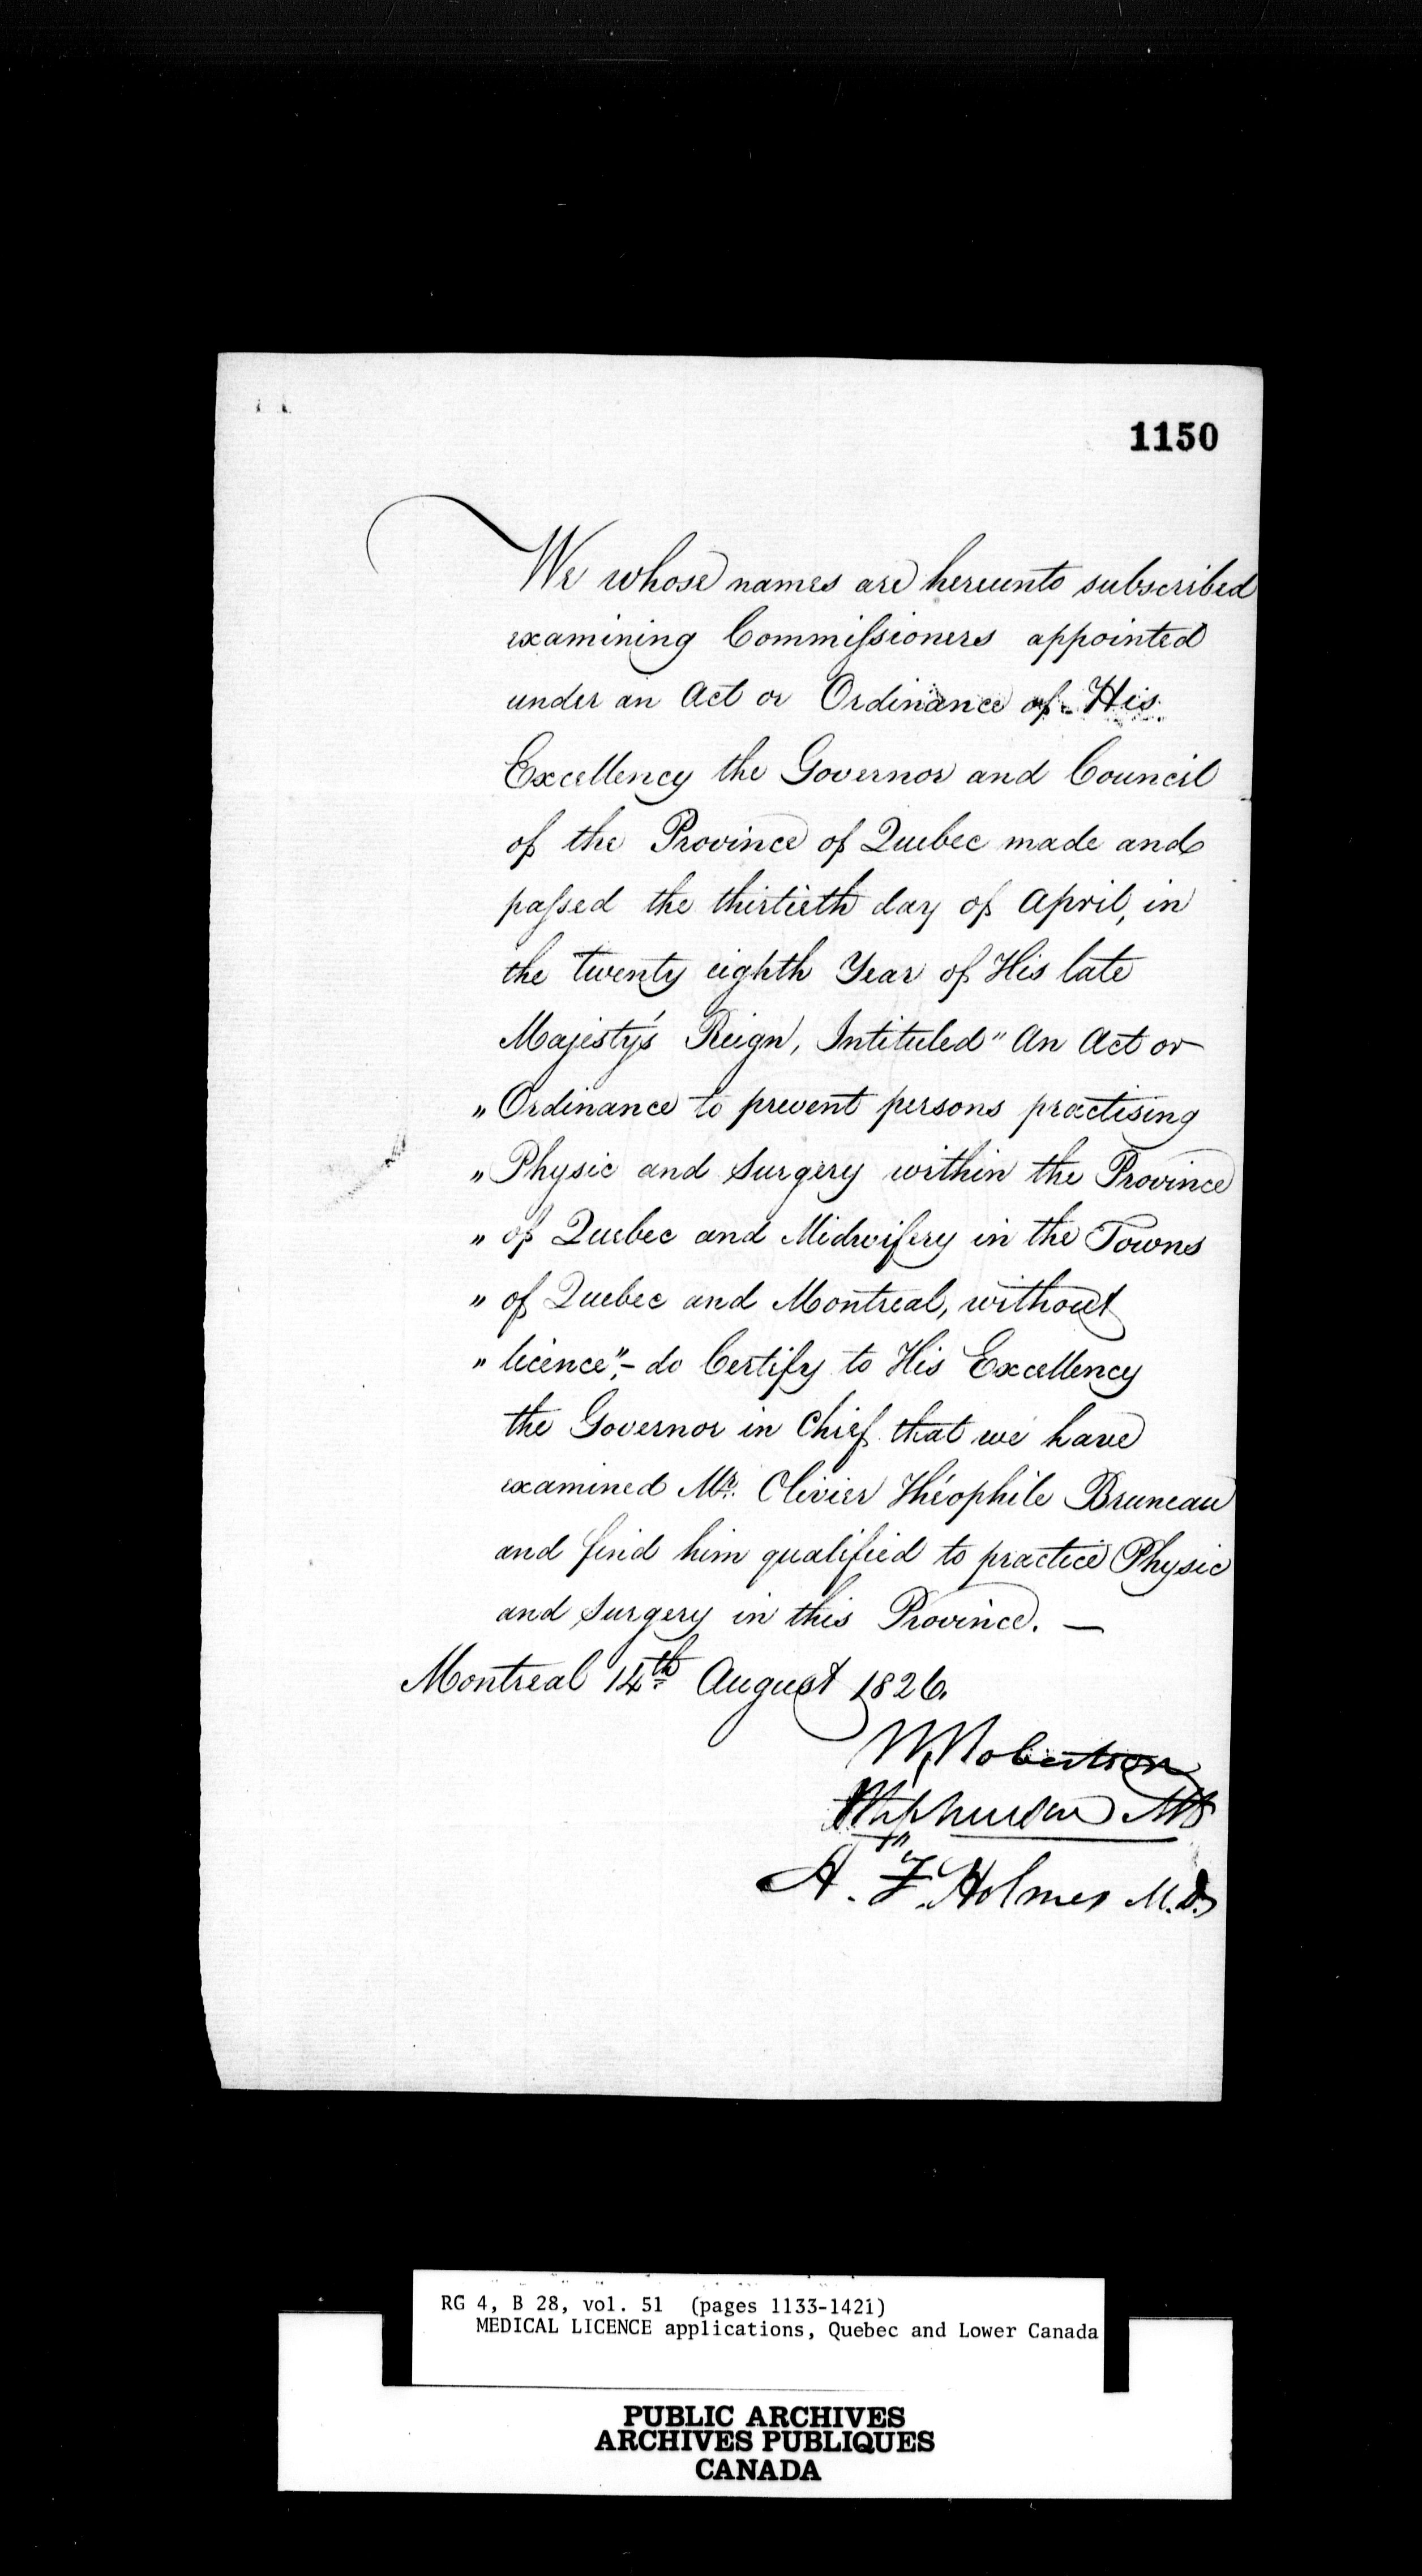 1150
We whose names are hereunto subscribed
examining Commissioners appointed
under an Act or Ordinance of His
Excellency the Governor and Council
of the Province of Quebec made and
passed the thirtieth day of April, in
the twenty eighth Year of His late
Majesty's Reign, Intituled " An Act or
" Ordinance to prevent persons practising
" Physic and Surgery within the Province
" of Quebec and Midwifery in the Towns
" of Quebec and Montreal, without
" licence", - do Certify to His Excellency
the Governor in Chief that we have
examined Mr. Olivier Théophile Bruneau
and find him qualified to practice Physic
and Surgery in this Province. —
Montreal 14th August 1826.
W Robertson
Stephenson MD
A. F. Holmes M.D.
RG 4, B 28, vol. 51 (pages 1133-1421)
MEDICAL LICENCE applications, Quebec and Lower Canada
PUBLIC ARCHIVES
ARCHIVES PUBLIQUES
CANADA